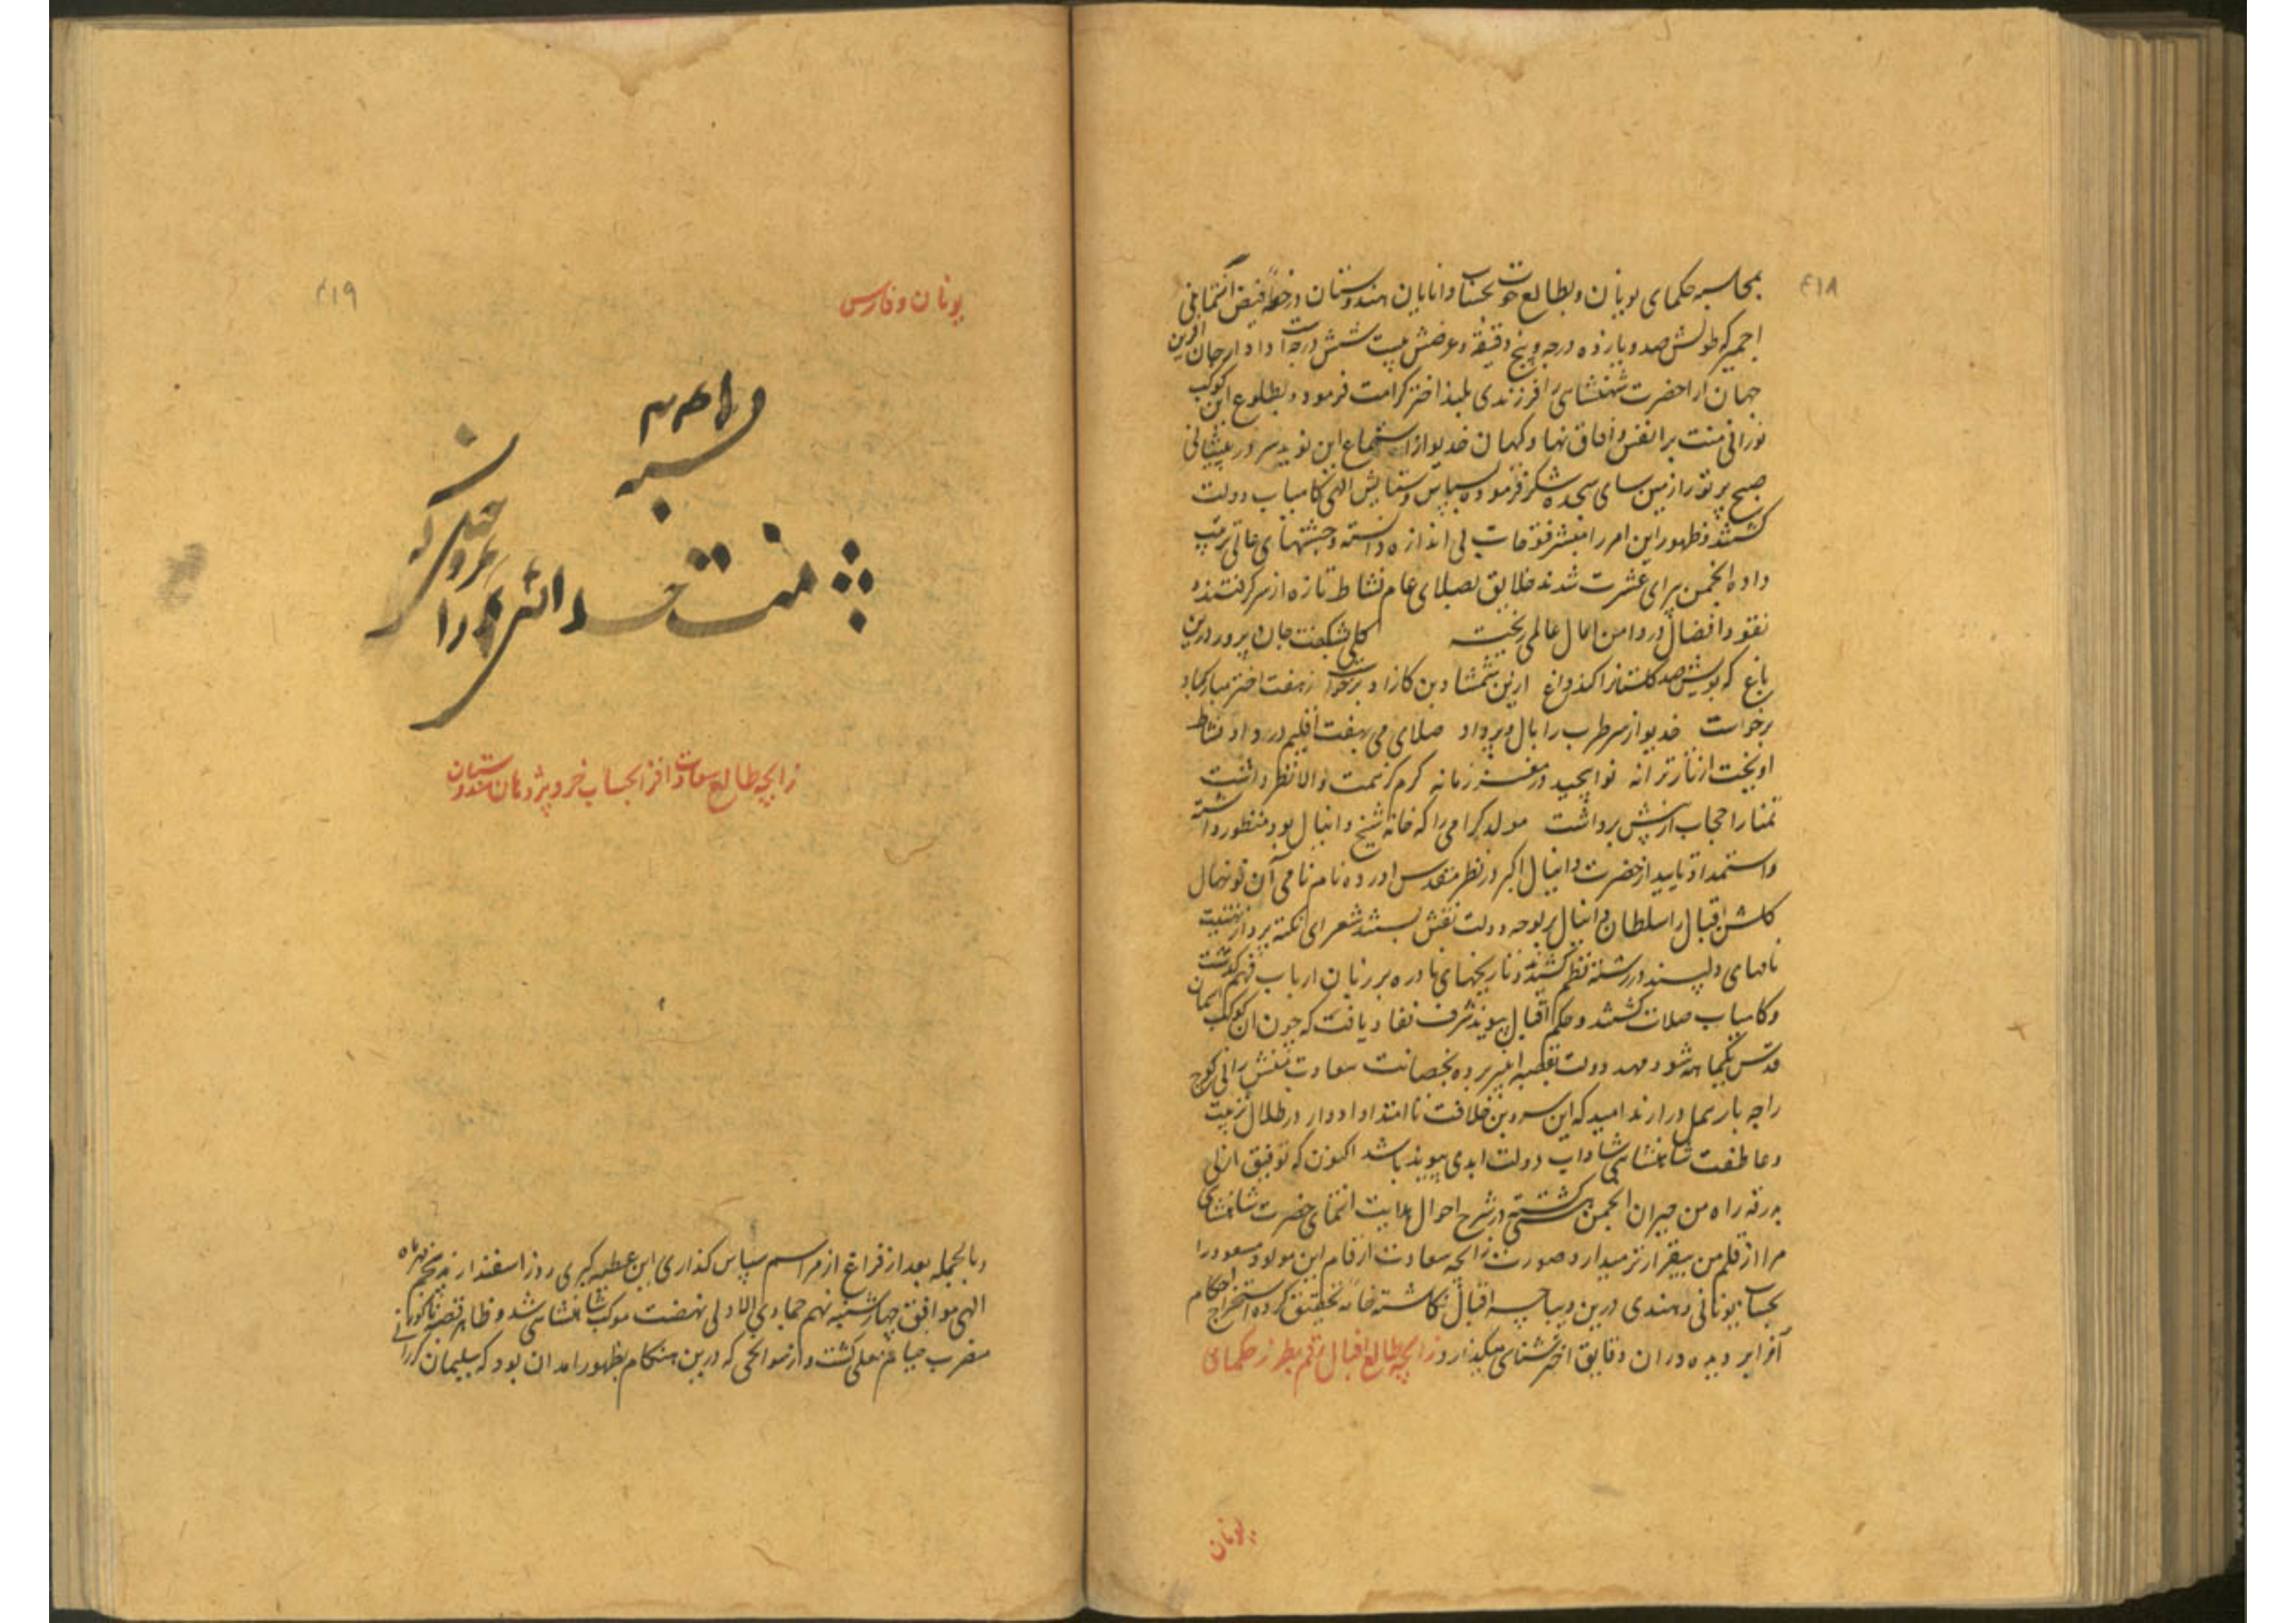 ۴۱۸
بمحاسبه حکمای یونان و بطالع حوت بحساب دانایان هندوستان در خطه فیض انتمای
اجمیر که طولش صد و یازده درجه و پنج دقیقه و عرضش بیست شش درجه است دادار جان آفرین
جهان آرا حضرت شهنشاهی را فرزندی بلند اختر کرامت فرمود و بطلوع این کوکب
نورانی منت بر انفس و آفاق نهاد کیهان خدیو از استماع این نوید سرور پیشانی
صبح پرتو را زمین سای سجده شکر فرموده سپاس و ستایش الهی کامیاب دولت
گشتند و ظهور این امر را مبشر فتوحات بی اندازه دانسته و جشنهای عالی ترتیب
داده انجمن پیرای عشرت شدند خلایق بصلای عام نشاط تازه از سر گرفتند و
نقود افضال در دامن آمال عالمی ریخت گلی شکفت جان پرور درین
باغ که بویش صد گلستانرا کند داغ ازین شمشاد بن کازاد برخواست ز هفت اختر مبارکباد
برخواست خدیو از سر طرب را بال و پر داد صلای می بهفت اقلیم در داد نشاط
آویخت از تار ترانه نوا پیچید در مغز زمانه کرم کز سمت والا نظر داشت
تمنا را حجاب از پیش برداشت مولد گرامی را که خانه شیخ دانیال بود منظور داشته
و استمداد تایید از حضرت دانیال اکبر در نظر مقدس آورده نام نامی آن نونهال
گلشن اقبال را سلطان دانیال بر لوحه دولت نقش بستند شعرای نکته پرداز تهنیت
نامهای دلپسند در رشته نظم کشیدند و تاریخهای نادره بر زبان ارباب فهم گذشت
و کامیاب صلات گشتند و حکم اقبال پیوند شرف نفاد یافت که چون آن کوکب آسمان
قدس یکماهه شود مهد دولت بقصبه انبیر برده بحضانت سعادت منش رانی کوچ
راجه باریمل درارند امید که این سرو بن خلافت تا امتداد ادوار در ظلال تربیت
و عاطفت شاهنشاهی شاداب دولت ابدی پیوند باشد اکنون که توفیق ازلی
بدرقه راه من حیران انجمن هستی گشته در شرح احوال هدایت انتمای حضرت شاهنشاهی
مرا از قلم من بیقرارتر میدارد صورت زایچه سعادت ارقام این مولود مسعود را
بحساب یونانی و هندی درین دیباچه اقبال نگاشته خامه تحقیق کرده استخراج احکام
آنرا بر دیده وران دقایق اختر شناسی میگذارد زایچه طالع اقبال رقم بطرز حکمای
یونان
۴۱۹
یونان و فارس
زایچه طالع سعادت افزا بحساب خرد پژوهان هندوستان
و بالجمله بعد از فراغ از مراسم سپاس گذاری این عطیه کبری روز اسفندارمذ پنجم مهر ماه
الهی موافق چهارشنبه نهم جمادی الاولی نهضت موکب شاهنشاهی شد و ظاهر قصبه ناگور
مضرب خیام معلی گشت و از سوانحی که درین هنگام بظهور آمد آن بود که سلیمان کررانی